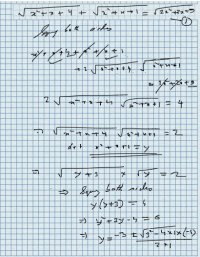 √x²+x+4 + √x²+x+1 = √2x²+2x+9
①
Sqng both sides
x²+x+4 + x²+x+1
+2 √x²+x+4 √x²+x+1
= 2x²+2x+9
2 √x²+x+4 √x²+x+1 = 4
⇒ √x²+x+4 √x²+x+1 = 2
let x²+x+1 = y
⇒ √y+3 × √y = 2
⇒ Sqng both sides
y(y+3) = 4
⇒ y²+3y-4 = 0
⇒ y = -3 ± √3²-4×1×(-4)
2×1